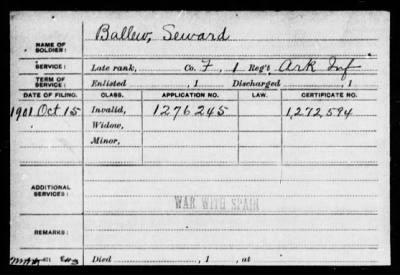 Ballew, Seward
NAME OF SOLDIER:
SERVICE: Late rank, Co. F, 1 Reg't Ark Inf
TERM OF SERVICE: Enlisted , 1 Discharged , 1
DATE OF FILING. CLASS. APPLICATION NO. LAW. CERTIFICATE NO.
1901 Oct 15 Invalid, 1276245 1,272,594
Widow,
Minor,
ADDITIONAL SERVICES:
WAR WITH SPAIN
REMARKS:
Died , 1 , at